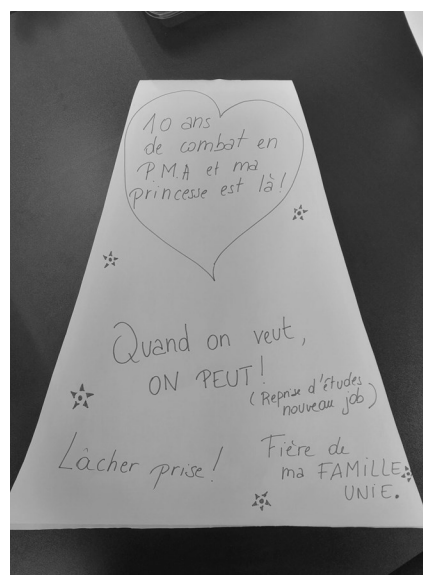 10 ans
de combat en
P.M.A et ma
princesse est là !
Quand on veut,
ON PEUT !
(Reprise d'études
nouveau job)
Lâcher prise !
Fière de
ma FAMiLLE
UNiE.